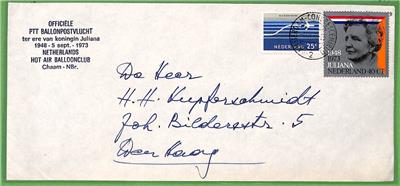 OFFICIËLE
PTT BALLONPOSTVLUCHT
ter ere van koningin Juliana
1948 - 5 sept. - 1973
NETHERLANDS
HOT AIR BALLOONCLUB
Chaam - NBr.
NEDERLAND 25 ct
1948
1973
JULIANA
NEDERLAND 40 CT
De Heer
H. H. Kupferschmidt
Joh. Bildersstr. 5
Den Haag